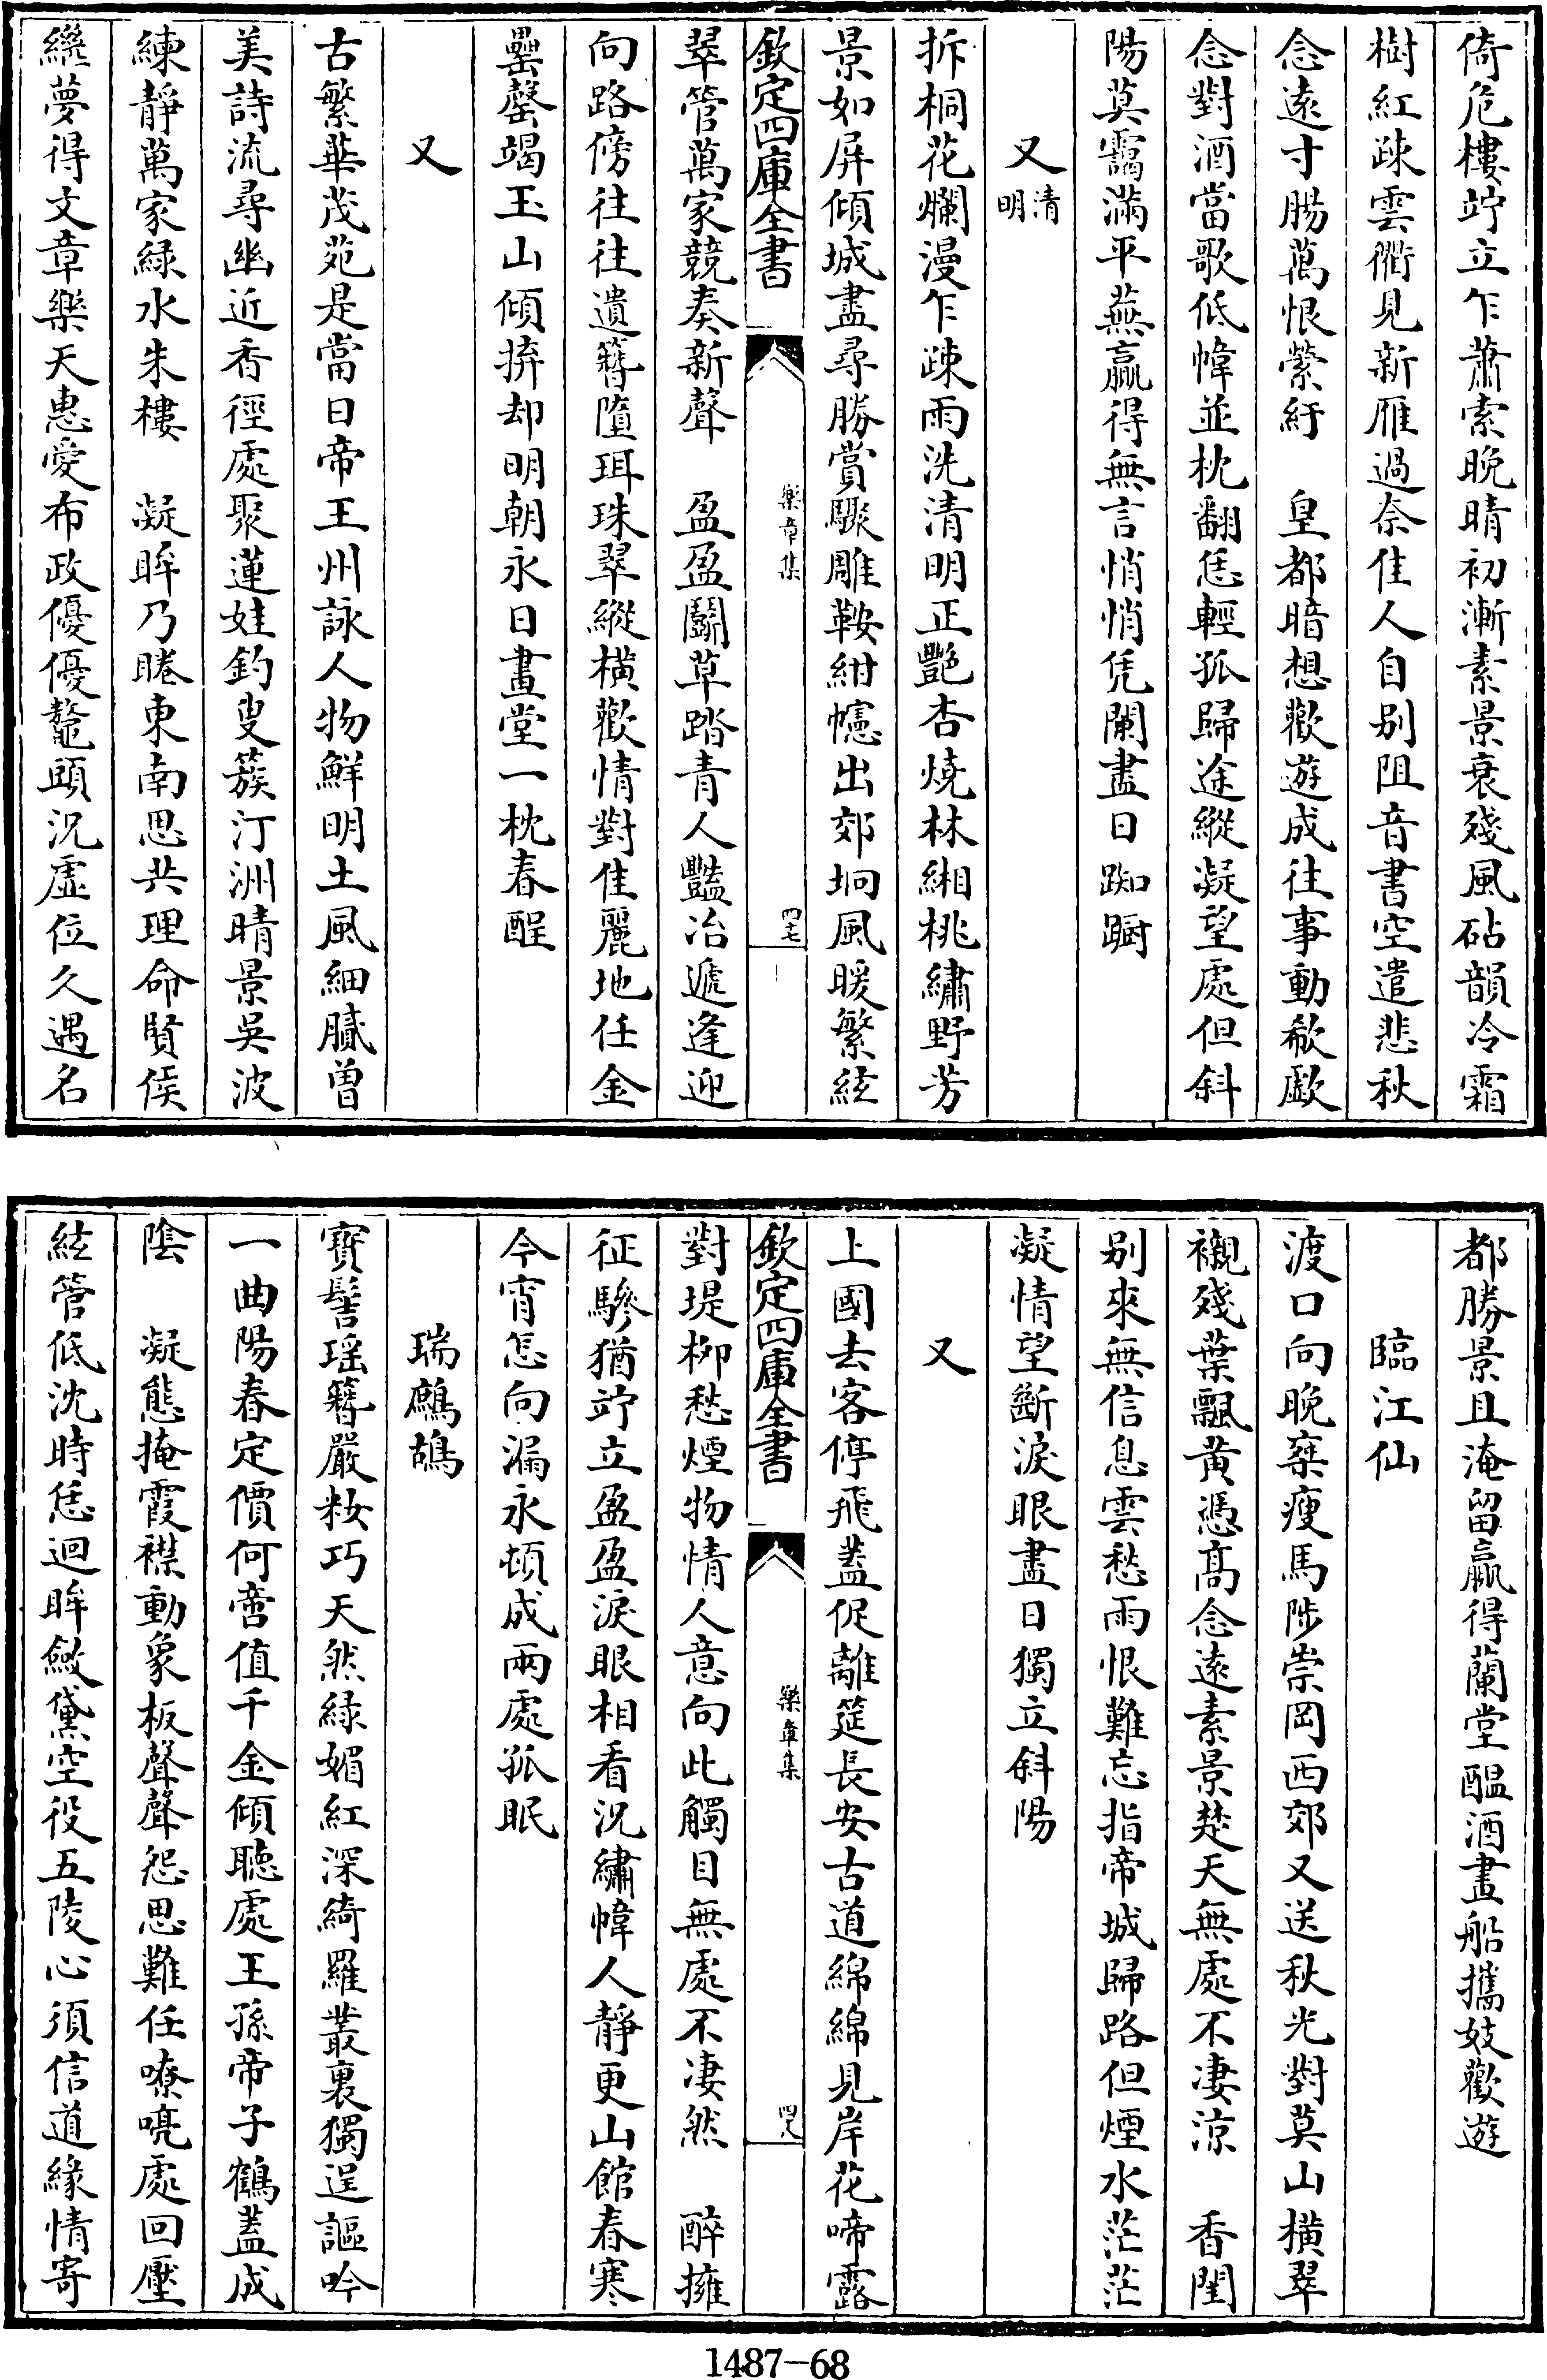 倚危樓竚立乍蕭索晚晴初漸素景衰殘風砧韻冷霜
樹紅疎雲衢見新雁過奈佳人自别阻音書空遣悲秋
念遠寸腸萬恨縈紆　皇都暗想歡遊成往事動欷歔
念對酒當歌低幃並枕翻恁輕孤歸途縱凝望處但斜
陽莫靄滿平蕪贏得無言悄悄凭闌盡日踟蹰
又清明
拆桐花爛漫乍疎雨洗清明正艷杏燒林緗桃繡野芳
景如屏傾城盡尋勝賞驟雕鞍紺幰出郊坰風暖繁絃
欽定四庫全書　樂章集　四七
翠管萬家競奏新聲　盈盈鬬草踏青人豔冶遞逢迎
向路傍往往遺簪墮珥珠翠縱横歡情對佳麗地任金
罍罄竭玉山傾拚却明朝永日畫堂一枕春酲
又
古繁華茂苑是當日帝王州詠人物鮮明土風細膩曽
美詩流尋幽近香徑處聚蓮娃釣叟簇汀洲晴景吳波
練靜萬家綠水朱樓　凝眸乃睠東南思共理命賢侯
繼夢得文章樂天惠愛布政優優鼇頭況虛位久遇名
都勝景且淹留贏得蘭堂醖酒畫船攜妓歡遊
臨江仙
渡口向晚乘瘦馬陟崇岡西郊又送秋光對莫山横翠
襯殘葉飄黄憑髙念遠素景楚天無處不凄涼　香閨
别來無信息雲愁雨恨難忘指帝城歸路但煙水茫茫
凝情望斷淚眼盡日獨立斜陽
又
上國去客停飛蓋促離筵長安古道綿綿見岸花啼露
欽定四庫全書　樂章集　四八
對堤柳愁煙物情人意向此觸目無處不凄然　醉擁
征驂猶竚立盈盈淚眼相看況繡幃人靜更山館春寒
今宵怎向漏永頓成兩處孤眠
瑞鷓鴣
寶髻瑶簪嚴妝巧天然綠媚紅深綺羅叢裏獨逞謳吟
一曲陽春定價何啻值千金傾聽處王孫帝子鶴蓋成
陰　凝態掩霞襟動象板聲聲怨思難任嘹喨處回壓
絃管低沈時恁迴眸斂黛空役五陵心須信道緣情寄
1487-68